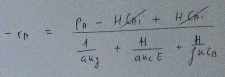 -r_A = (P_A - H C_Ai + H C_Ai) / (1/(a k_g) + H/(a k_c E) + H/(f k C_B))